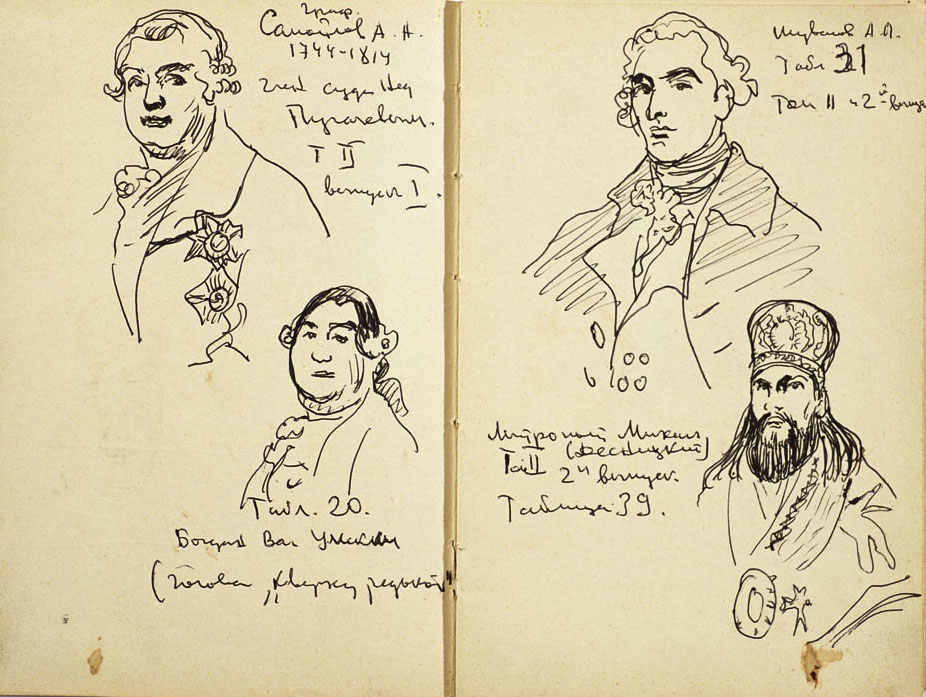 граф.
Самойлов А. Н.
1744-1814
член суда над
Пугачевым.
Т II
выпуск I.
Табл. 20.
Богдан Вас Умский
(голова „кверху редькой"
Шувалов А.П.
Табл 31
Том II 2й выпуск
Митрополит Михаил
(Десницкий)
Том II
2й выпуск.
Таблица 39.